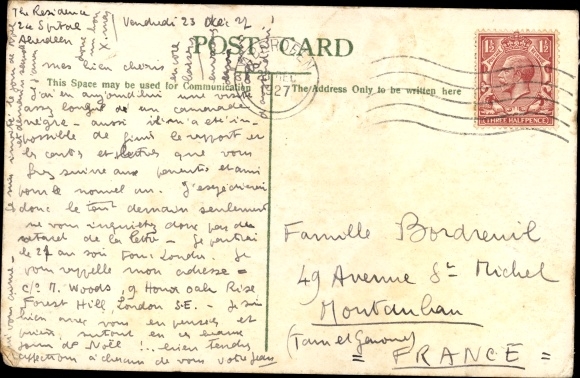 The Residence
24 Spital
Aberdeen
Vendredi 23 Déc 27
POST CARD
mes bien chéris
This Space may be used for Communication
The Address Only to be written here
J'ai eu aujourd'hui une visite
assez longue de un camarade
nègre - aussi il m'a été im-
possible de finir le rapport et
les cartes et lettres que vous
ferez suivre aux parents et amis
pour le nouvel an. J'essaierai
donc le tout demain seulement
ne vous inquiétez donc pas du
retard de la lettre - Je partirai
le 27 au soir pour Londres. Je
vous rappelle mon adresse =
c/o M. Woods, 9 Honor Oak Rise
Forest Hill, London S.E. - Je suis
bien avec vous en pensées et
prières surtout en ce beau
jour de Noël !.. bien tendres
affections à chacun de vous votre Jean
ABERDEEN
DEC
1927
1½ 1½
THREE HALFPENCE
Famille Bordreuil
49 Avenue St Michel
Montauban
(Tarn et Garonne)
= FRANCE =